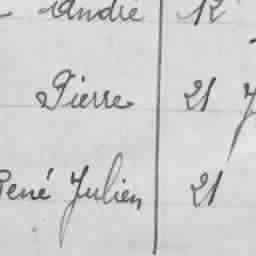 André 12
Pierre 21
René Julien 21